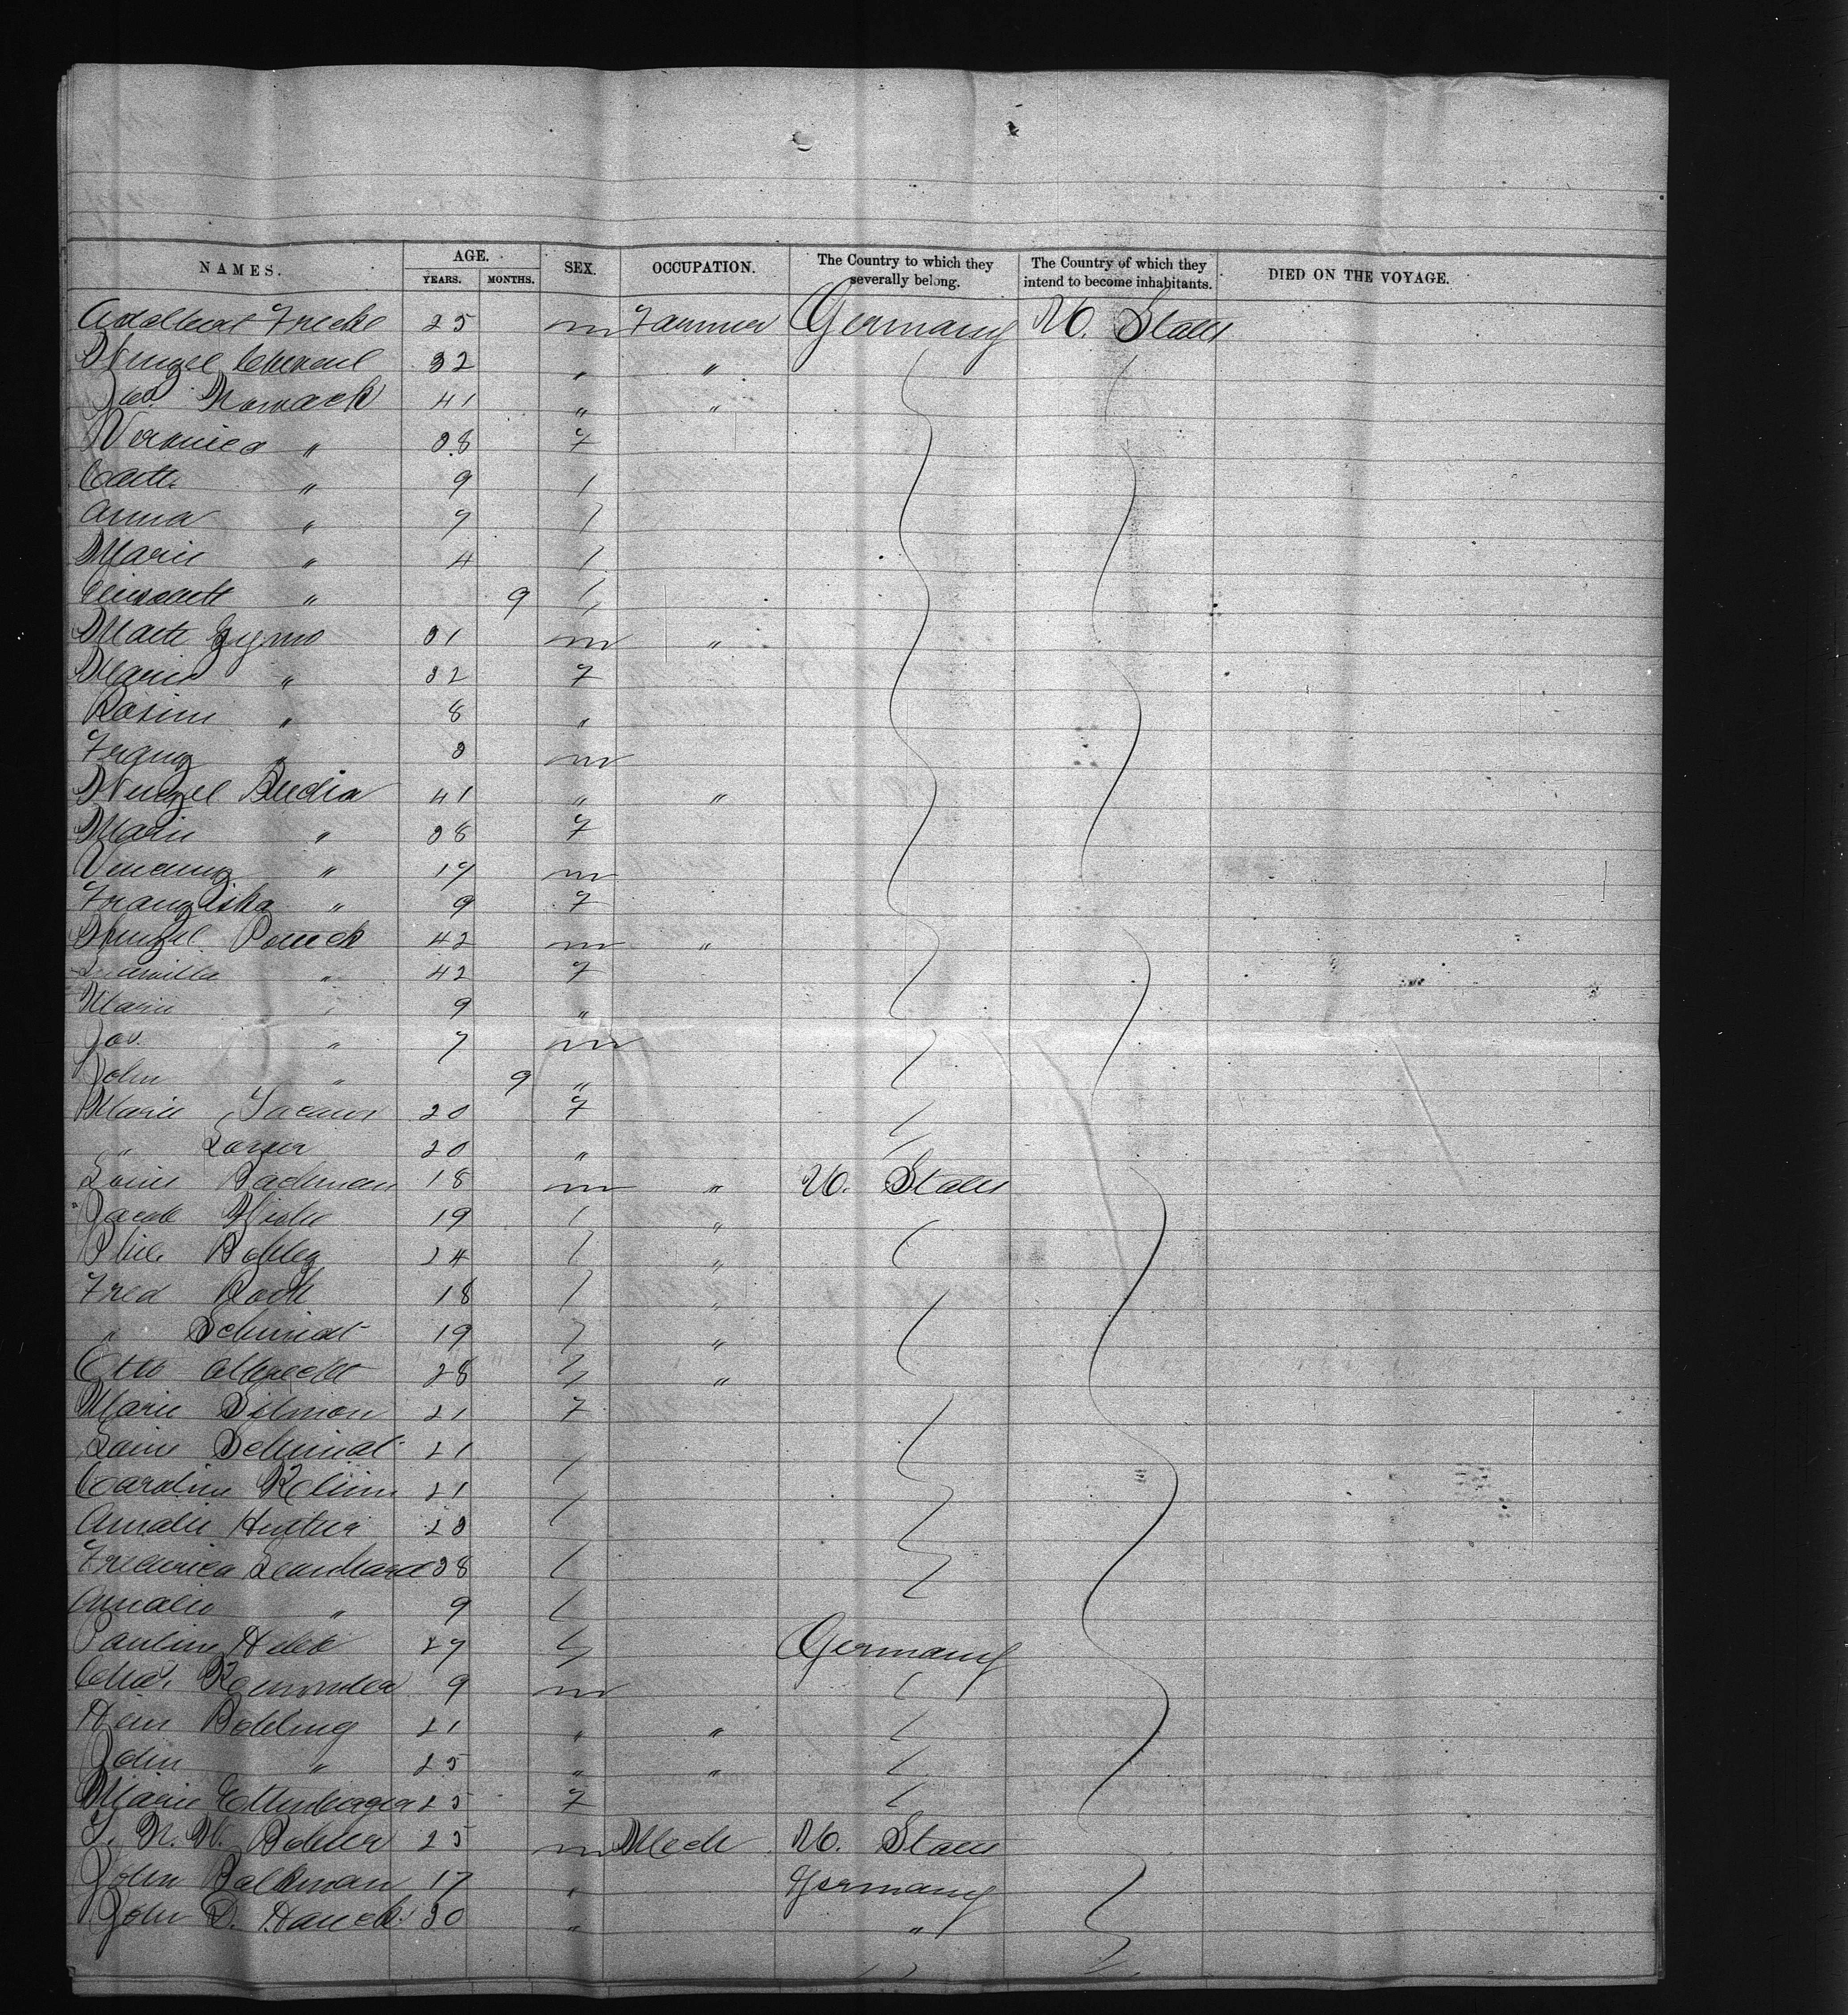 NAMES. AGE. YEARS. MONTHS. SEX. OCCUPATION. The Country to which they severally belong. The Country of which they intend to become inhabitants. DIED ON THE VOYAGE.
Adalbert Freche 25 m Farmer Germany U. States
Wenzel 32 " "
Jos. Nowack 41 " "
Veronica " 38 f
Cath. " 9
Anna " 7
Marie " 4
" 9
Math 31 m "
Marie " 32 f
Rosine " 8 "
Franz " 3 m
Wenzel Budia 41 " "
Marie " 38 f
Vincenz " 17 m
Franziska " 9 f
Wenzel 42 m "
Ludmilla " 42 f
Marie " 9 "
Jos. " 7 m
John " 9 "
Marie 20 f
" 20 "
Louis Bachman 18 m " U. States
Jacob 19 "
Phil. 24 "
Fred Koch 18 "
" Schmidt 19 "
Otto Albrecht 28 "
Marie 21 f
Louise Schmidt 21
Caroline 21
Amalie 23
Frederica Leonhard 38
Amalie " 9
Pauline 27 Germany
Chas. 9 m
Hein Bohling 21 " "
John " 25 " "
Marie Ettenberger 25 f
25 m Mech U. States
John Balkman 17 " Germany
John D. Hauck 30 " "